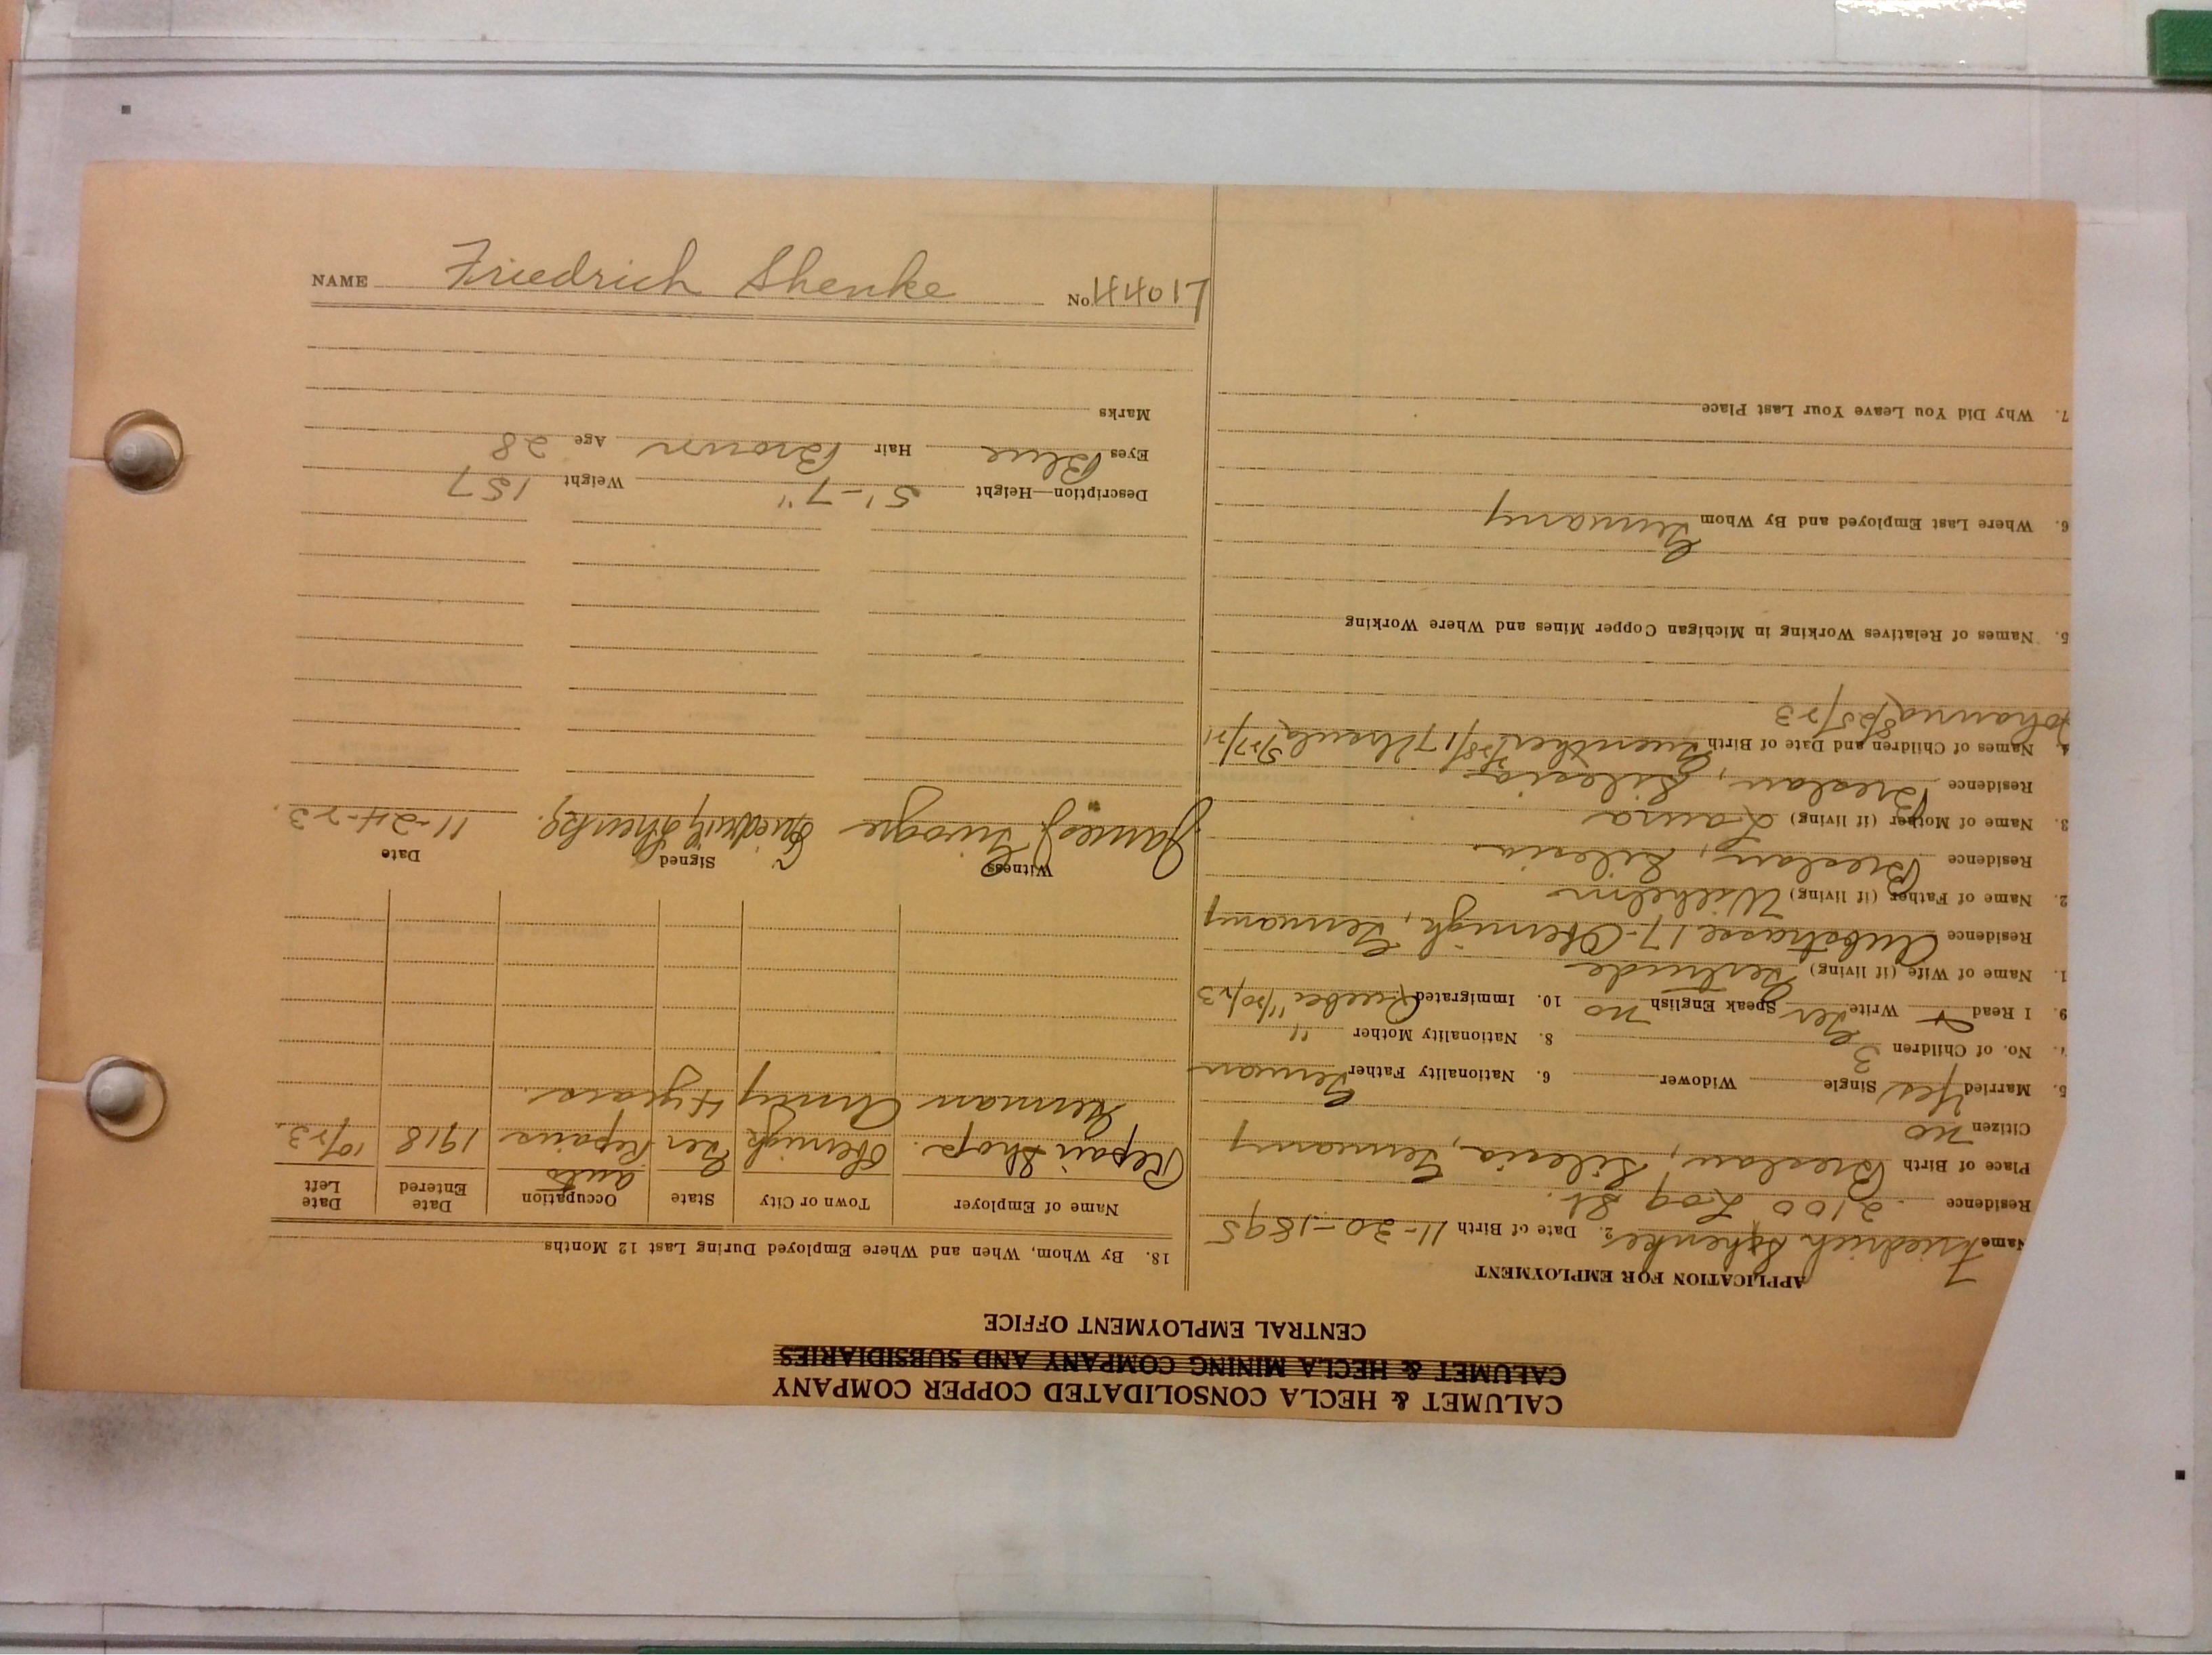 CALUMET & HECLA CONSOLIDATED COPPER COMPANY
CALUMET & HECLA MINING COMPANY AND SUBSIDIARIES
CENTRAL EMPLOYMENT OFFICE
APPLICATION FOR EMPLOYMENT
Name Friedrich Shenke 2. Date of Birth 11-20-1895
Residence 2100 Log St.
Place of Birth Breslau, Silesia, Germany
Citizen no
5. Married Yes Single Widower 6. Nationality Father German
7. No. of Children 3 8. Nationality Mother "
9. I Read Write Ger Speak English no 10. Immigrated Quebec 11/20/23
1. Name of Wife (if living) Gertrude
Residence 17- Obernigk, Germany
2. Name of Father (if living) Wilhelm
Residence Breslau, Silesia
3. Name of Mother (if living) Laura
Residence Breslau, Silesia
4. Names of Children and Date of Birth Guenther /17 Ursula 5/27/21
Johanna 8/25/23
5. Names of Relatives Working in Michigan Copper Mines and Where Working
6. Where Last Employed and By Whom Germany
7. Why Did You Leave Your Last Place
18. By Whom, When and Where Employed During Last 12 Months
Name of Employer Town or City State Occupation Date Entered Date Left
Repair Shop. Obernigk Ger auto Repairs 1918 10/23.
German Army 4 years.
Witness Signed Date
James Friedrich Shenke. 11-24-23.
Description—Height 5'-7" Weight 157
Eyes Blue Hair Brown Age 28
Marks
NAME Friedrich Shenke No. 14401